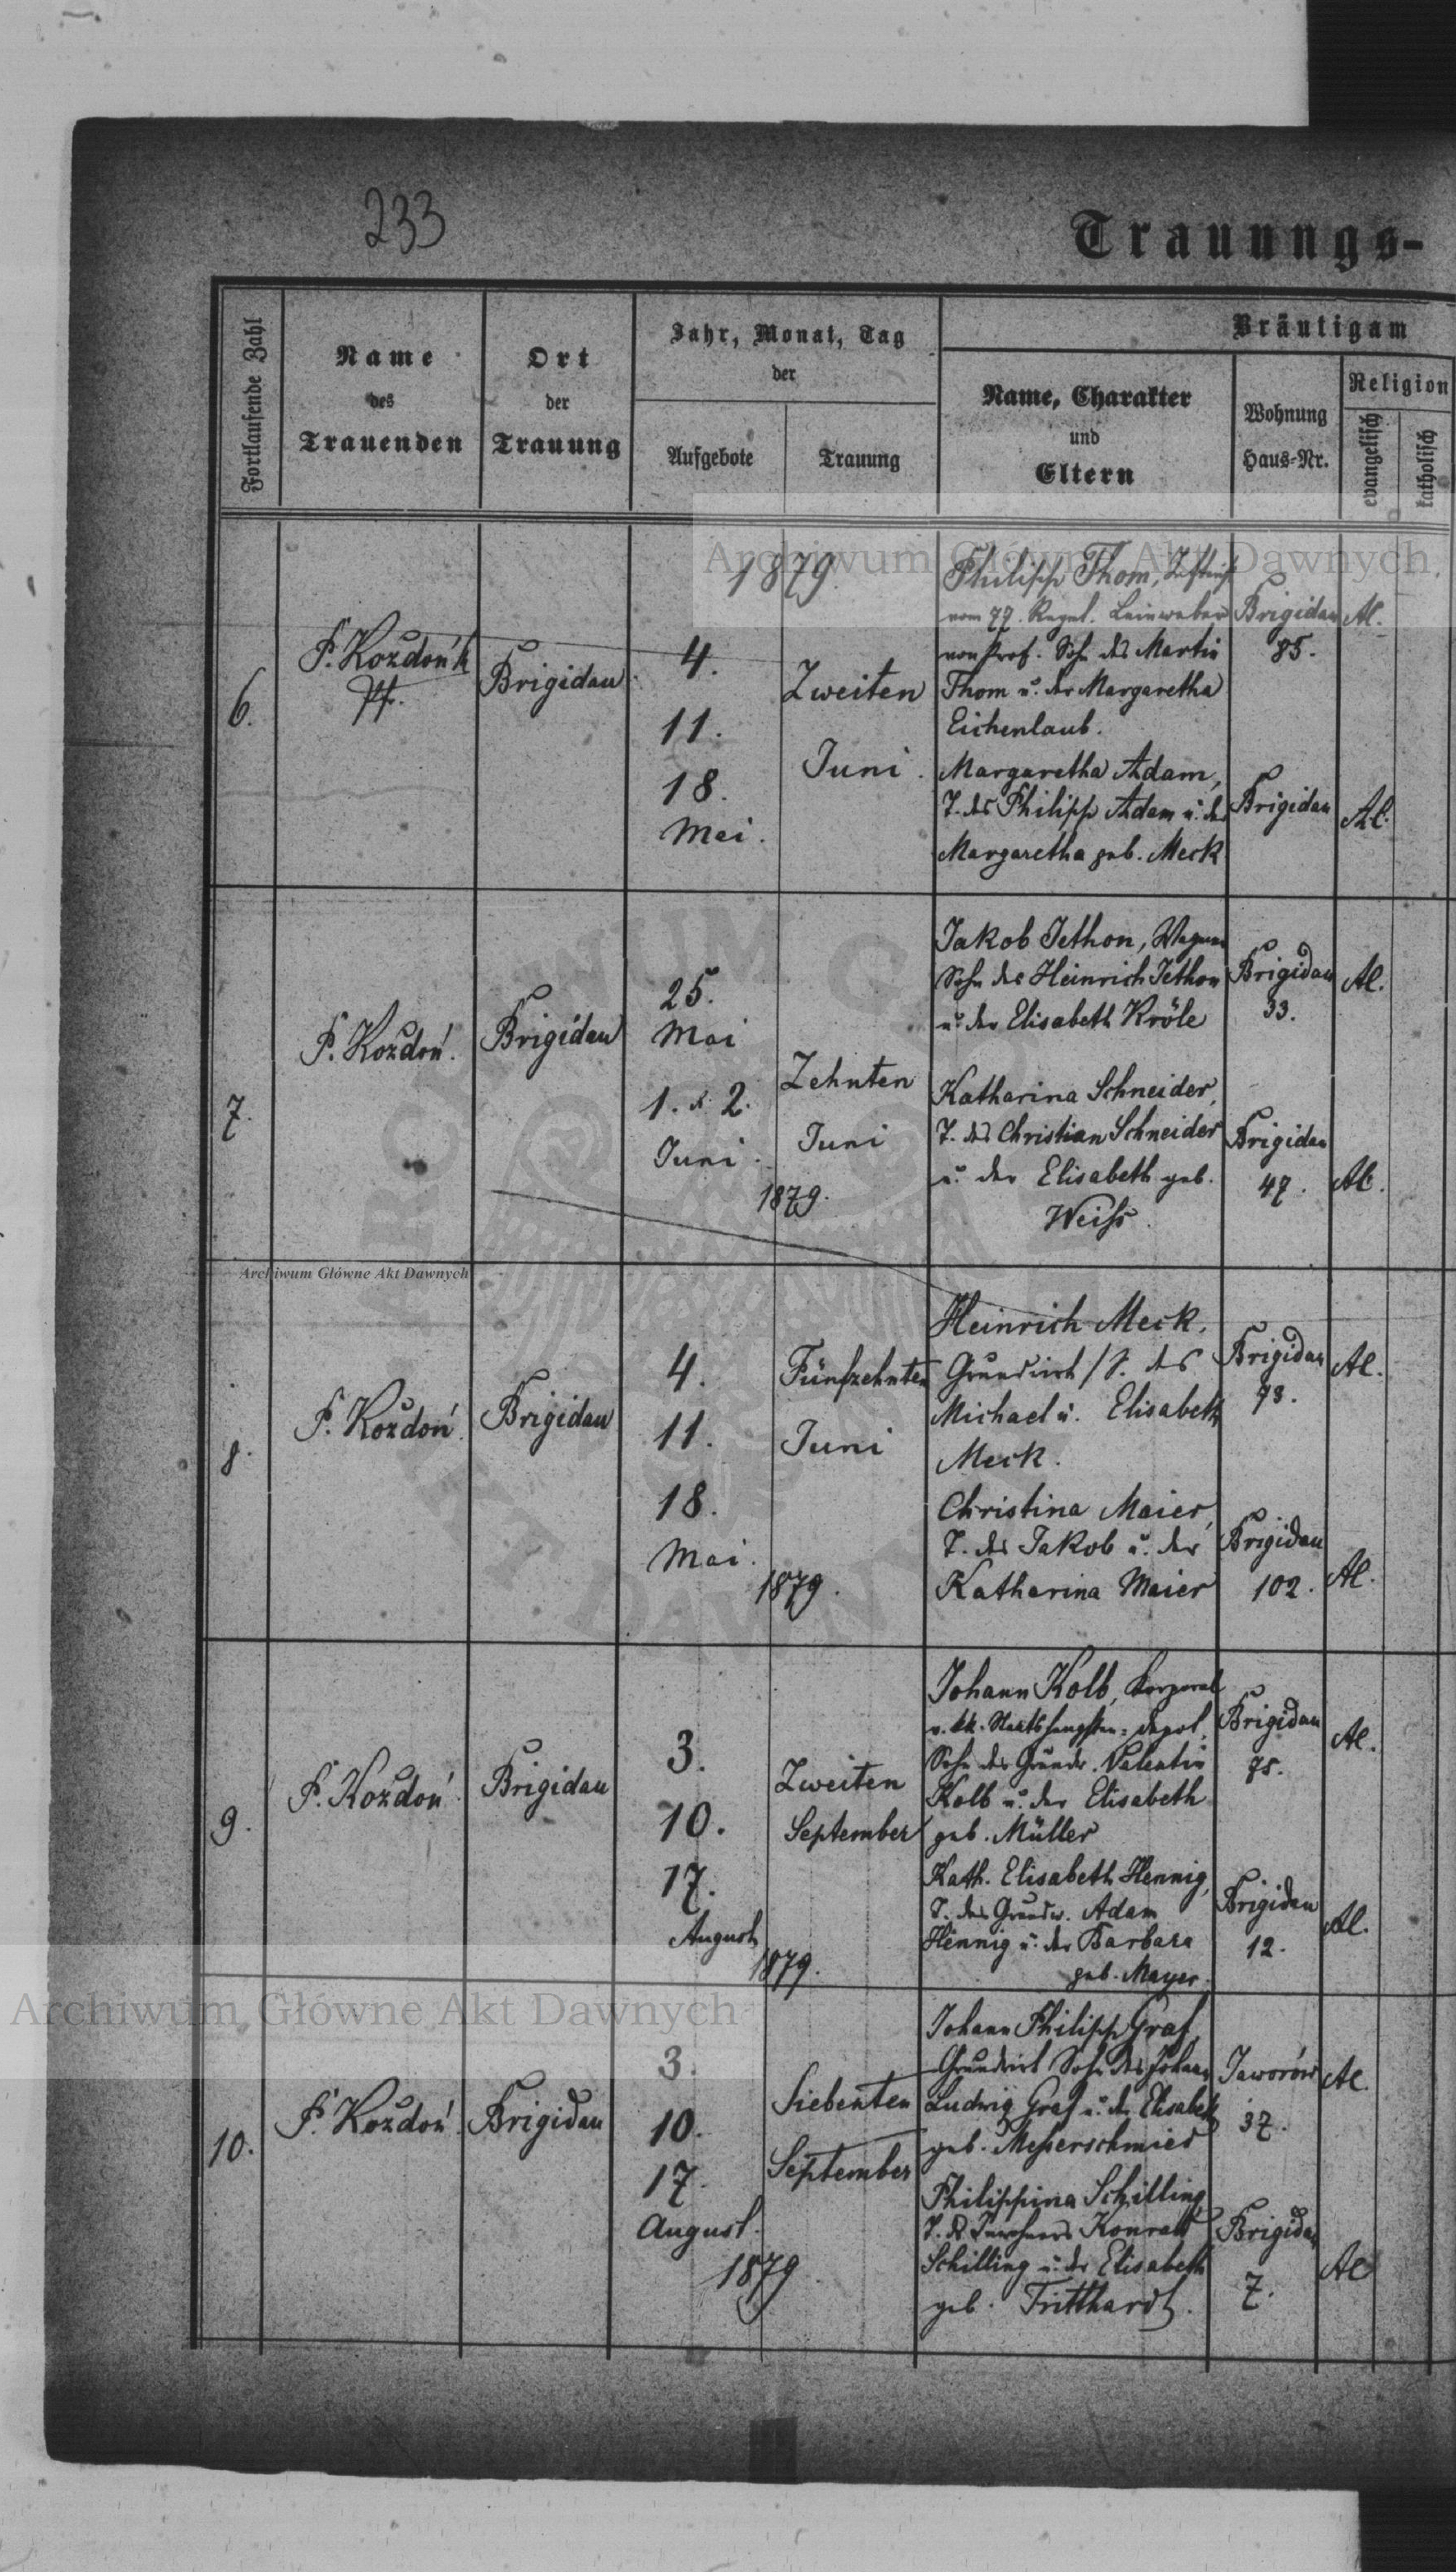 233
Trauungs-
Fortlaufende Zahl
Name
des
Trauenden
Ort
der
Trauung
Jahr, Monat, Tag
der
Aufgebote
Trauung
Bräutigam
Name, Charakter
und
Eltern
Wohnung
Haus-Nr.
Religion
evangelisch
katholisch
Archiwum Główne Akt Dawnych
6.
P. Kożdoń
Pf.
Brigidau
1879.
4.
11.
18.
Mai.
Zweiten
Juni.
Philipp Thom,
vom 77. Regmt. Leinweber
von Prof. Sohn des Martin
Thom u. der Margaretha
Eichenlaub.
Brigidau
85.
Al.
Margaretha Adam,
T. des Philipp Adam u. der
Margaretha geb. Meck
Brigidau
Al.
7.
P. Kożdoń.
Brigidau
25.
Mai
1. & 2.
Juni.
Zehnten
Juni
1879.
Jakob Jethon, Wagner
Sohn des Heinrich Jethon
u. der Elisabeth Kröle
Brigidau
33.
Al.
Katharina Schneider,
T. des Christian Schneider
u. der Elisabeth geb.
Weiss.
Brigidau
47.
Al.
Archiwum Główne Akt Dawnych
8.
P. Kożdoń.
Brigidau
4.
11.
18.
Mai.
Fünfzehnten
Juni
1879.
Heinrich Meck,
Grundwirt / S. des
Michael u. Elisabeth
Meck.
Brigidau
73.
Al.
Christina Maier,
T. des Jakob u. der
Katharina Maier
Brigidau
102.
Al.
9.
P. Kożdoń.
Brigidau
3.
10.
17.
August
Zweiten
September
1879.
Johann Kolb, Korporal
v. kk. Staatshengsten-Depot,
Sohn des Grundw. Valentin
Kolb u. der Elisabeth
geb. Müller
Brigidau
75.
Al.
Kath. Elisabeth Hennig,
T. des Grundw. Adam
Hennig u. der Barbara
geb. Mayer.
Brigidau
12.
Al.
Archiwum Główne Akt Dawnych
10.
P. Kożdoń.
Brigidau
3.
10.
17.
August.
Siebenten
September
1879.
Johann Philipp Graf,
Grundwirt Sohn des Johann
Ludwig Graf u. der Elisabeth
geb. Messerschmied
Jaworów
37.
Al.
Philippina Schilling,
T. d. Konrad
Schilling u. der Elisabeth
geb. Tritthardt.
Brigidau
7.
Al